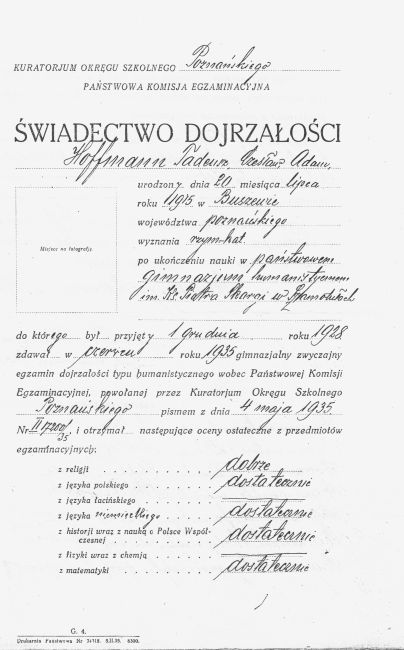 KURATORJUM OKRĘGU SZKOLNEGO Poznańskiego
PAŃSTWOWA KOMISJA EGZAMINACYJNA
ŚWIADECTWO DOJRZAŁOŚCI
Hoffmann Tadeusz, Czesław, Adam,
urodzony dnia 20 miesiąca lipca
roku 1915 w Buszewie
województwa poznańskiego
Miejsce na fotografję.
wyznania rzym-kat.
po ukończeniu nauki w państwowem
gimnazjum humanistycznem
im. Ks. Piotra Skargi w Szamotułach
do którego był przyjęty 1 grudnia roku 1928
zdawał w czerwcu roku 1935 gimnazjalny zwyczajny
egzamin dojrzałości typu humanistycznego wobec Państwowej Komisji
Egzaminacyjnej, powołanej przez Kuratorjum Okręgu Szkolnego
Poznańskiego pismem z dnia 4 maja 1935.
Nr II i otrzymał następujące oceny ostateczne z przedmiotów
egzaminacyjnych:
z religji dobrze
z języka polskiego dostatecznie
z języka łacińskiego
z języka niemieckiego dostatecznie
z historji wraz z nauką o Polsce Współ-
czesnej dostatecznie
z fizyki wraz z chemją
z matematyki dostatecznie
G. 4.
Drukarnia Państwowa Nr